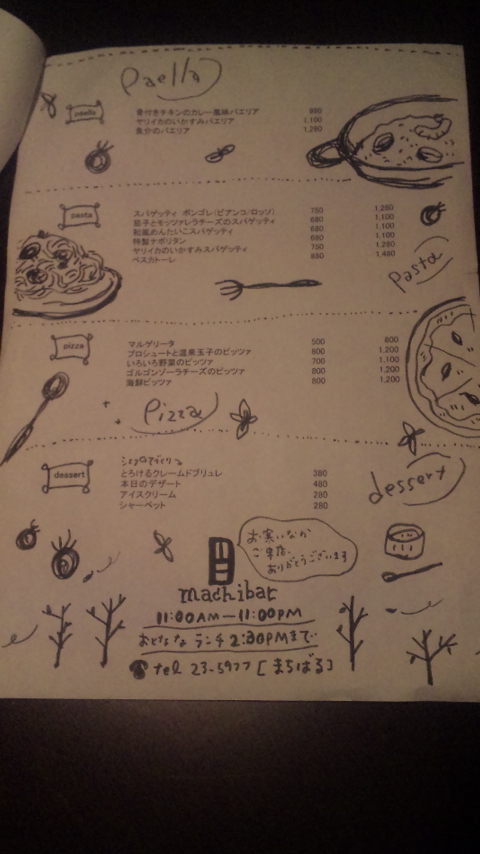 Paella
paella
骨付きチキンのカレー風味パエリア 980
ヤリイカのいかすみパエリア 1,100
魚介のパエリア 1,280
pasta
スパゲッティ ボンゴレ(ビアンコ/ロッソ) 750 1,280
茄子とモッツァレラチーズのスパゲッティ 680 1,100
和風めんたいこスパゲッティ 680 1,100
特製ナポリタン 680 1,100
ヤリイカのいかすみスパゲッティ 750 1,280
ペスカトーレ 880 1,480
pasta
pizza
マルゲリータ 500 800
プロシュートと温泉玉子のピッツァ 600 1,200
いろいろ野菜のピッツァ 700 1,100
ゴルゴンゾーラチーズのピッツァ 800 1,200
海鮮ピッツァ 800 1,200
Pizza
dessert
とろけるクレームドブリュレ 380
本日のデザート 480
アイスクリーム 280
シャーベット 280
dessert
お寒いなか
ご来店、
ありがとうございます
machibar
11:00AM—11:00PM
おとなな ランチ 2:30PMまで
tel 23-5977 [まちばる]